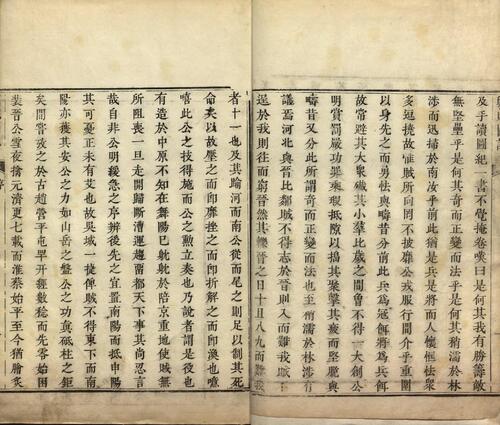 及手讀圖紀一書不覺掩卷嘆曰是何其我于有勝籌敵
無堅壘乎是何其奇而正變而法乎是何其豫而濡於林
涉而迅掃於南汝乎前此猶是兵是將而人懷怔衆
多逗撓故雖賊所向罔不披靡公戎服行間介乎重圍
以身先之而勇怯與疇昔分前此兵爲寇餌將爲兵何
故常避其大衆殱其小羣比歲之間曾不得一大創公
明賞罰嚴功罪乘瑕抵隙以搗其聚擊其疲而堅脆與
疇昔又分此所謂奇而正變而法也至稍濡於林涉有
議焉河北與晉比鄰賊不得志於晉則入而難我賊旣
逞於我則往而窮晉然其難晉之日十且八九而難我
者十一也及其踰河而南公從而尾之則足以制其死
命矣以故壓之而即糜挫之而即折解之而即渙也噫
嘻此公之技得施而公之勲立奏也乃說者謂是役也
有造於中原不知在舞陽已躭躭於陪京重地使賊無
所阻喪一旦走開歸斷漕運趨留都天下事其尚忍言
哉自非公明緩急之序辨後先之宜置南陽而抵申陽
其可憂正未有艾也故吳城一捷俾賊不得東下而南
陽亦獲其安公之力如山岳之盤公之功與砥柱之鉅
矣間嘗攷之於古趙營平屯早开經數稔而先零始困
裴晉公雪夜擒元濟更七載而淮蔡始平至今猶膾炙